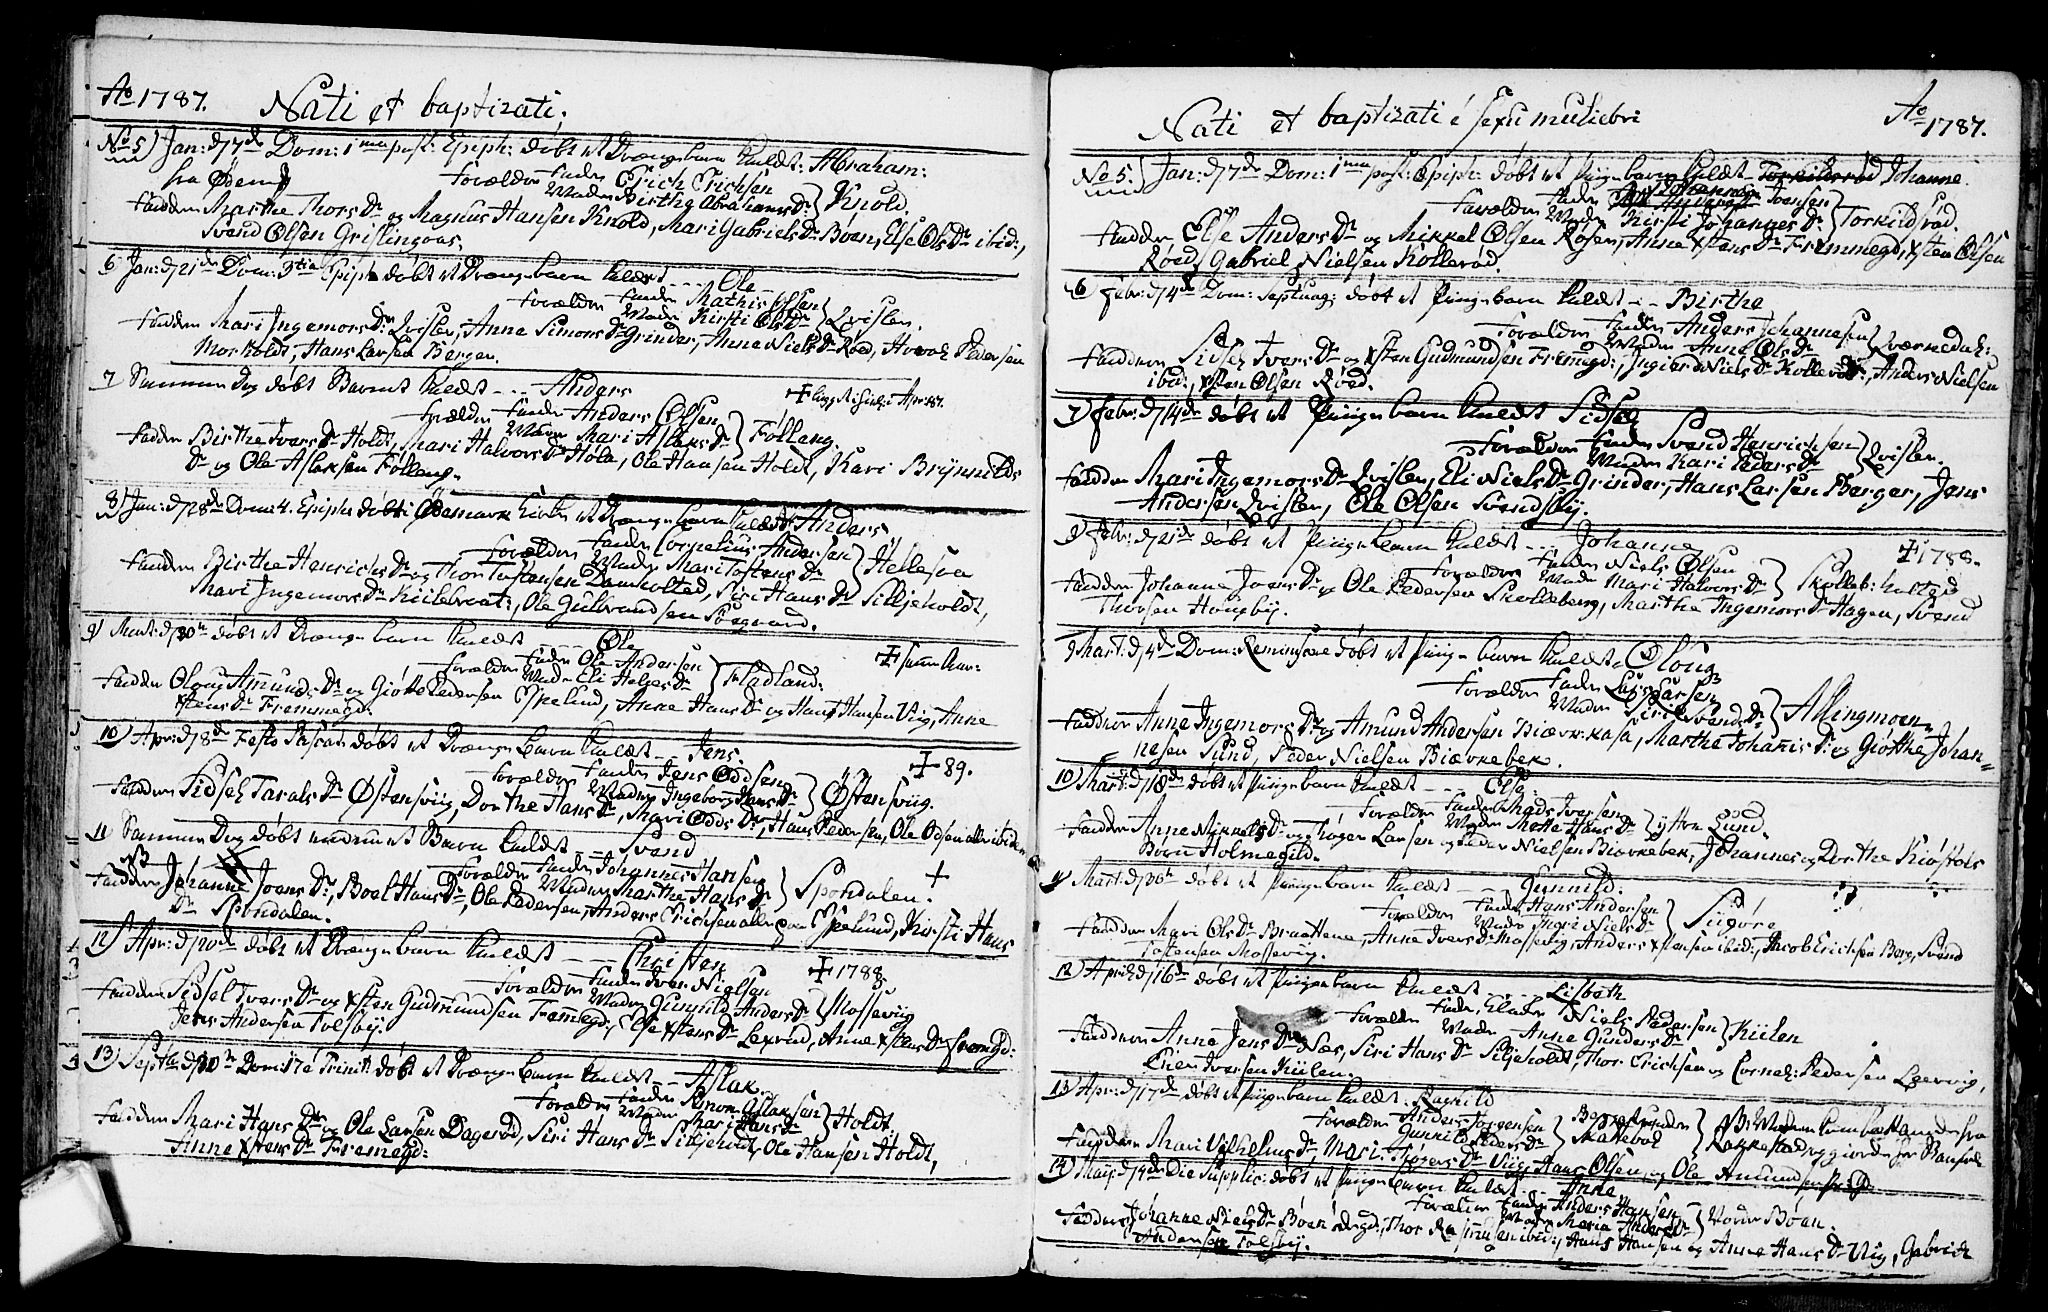 Aº 1787. Nati et baptizati;
No 5) Jan: d 7de Dom: 1ma post: Epiph: døbt et Drænge barn kaldet: Abraham:
fra Ødem
Forældre Fader Erich Erichsen
Moder Birthe Abrahams Dr } Knold,
Faddere Marthe Thors Dr og Magnus Hansen Knold, Mari Gabriels Dr Boen, Else Ols Dr ibid:,
Svend Olsen Grislingaas;
6 Jan: d 21de Dom: 3tia Epiph døbt et Drænge barn kaldet - - - - Ole -
Forældre Fader Mathis Olsen
Moder Kirsti Ols Dr } Qvislen,
Faddere Mari Ingemors Dr Qvislen, Anne Simons Dr Grinder, Anne Niels Dr Røed, Pedersen
Morholdt, Hans Larsen Berger.
7 Samme Dag døbt Barnet kaldet - - - Anders
Forældre Fader Anders Olsen
Moder Mari Aslaks Dr } Følleng
Faddere Birthe Ivers Dr Holdt, Mari Halvors Dr Høla, Ole Hansen Holdt, Kari Brynnilds
Dr og Ole Aslaksen Følleng.
8) Jan: d 28de Dom: 4. Epiph: døbt i Ødemark Kirke et Drænge barn kaldet Anders
Forældre Fader Cornelius Andersen
Moder Mari Tostens Dr } Hellesøe
Faddere Birthe Henrichs Dr og Thor Tostensen Damholted, Siri Hans Dr Silljeholdt,
Mari Ingemors Dr Kiilebroat:, Ole Gulbrandsen Søegaard.
9) Mart: d 30te døbt et Drænge barn kaldet - - Ole
+ samme Aar:
Forældre Fader Ole Andersen
Moder Eli Helges Dr } Fladland:
Faddere Oloug Amunds Dr og Giøtte Pedersen Espelund, Anne Hans Dr og Hans Hansen Viig, Anne
Xstens Dr Fremmegd.
10) Apr: d 8de Festo Pascat: døbt et Drænge barn kaldet - - Jens.
+ 89.
Forældre Fader Jens Oddsen
Moder Ingeborg Hans Dr } Østensviig.
Faddere Sidsel Tarals Dr Østensviig, Dorthe Hans Dr, Mari Odds Dr, Hans Pedersen, Ole Odsen alle ibidem
11 Samme Dag døbt et Barn kaldet - - Svend
NB
Forældre Fader Johannes Hansen
Moder Marthe Hans Dr } Spondalen. +
Faddere Johanne Joens Dr, Boel Hans Dr, Ole Pedersen, Anders Erichsen alle paa Espelund, Kirsti Hans
Dr Spondalen.
12) Apr: d 20de døbt et Drænge barn kaldet - - - - Christen
+ 1788
Forældre Fader Iver Nielsen
Moder Gunnild Anders Dr } Mosseviig
Faddere Sidsel Ivers Dr og Xsten Gudmundsen Fremegd:, Else Xstens Dr Lexrud, Anne Xstens Dr Fremgd:
Jens Andersen Tolsby.
13) Septb: d 30te Dom: 17de Trinit: døbt et Drænge barn kaldet - - Aslak
Forældre Fader Simon Aslaksen
Moder Mari Hans Dr } Holdt.
Faddere Mari Hans Dr og Ole Larsen Dagerød, Siri Hans Dr Silljeholdt, Ole Hansen Holdt,
Anne Xstens Dr Fremegd:
Nati et baptizati é sexu muliebri Aº 1787.
No 5.) Jan: d 7de Dom: 1ma post: Epiph: døbt et Piige barn kaldet Torkildsrød Johanne.
Forældre Fader Joensen
Moder Kirsti Johannes Dr } Torkildsrød.
Faddere Else Anders Dr og Mikkel Olsen Røsen, Anne Xstens Dr Fremmegd, Xsten Olsen
Røed, Gabriel Nielsen Kollerød.
6) Febr: d 4de Dom: Septuag: døbt et Piige barn kaldet - - Birthe
Forældre Fader Anders Johannesen
Moder Anne Ols Dr } Qvernedal:
Faddere Sidsel Ivers Dr og Xsten Gudmundsen Fremegd:, Ingier Niels Dr Kollerød, Anders Nielsen
ibid:, Xsten Olsen Røed.
7) Febr: d 14de døbt et Piige barn kaldet Sidsel
Forældre Fader Svend Henrichsen
Moder Kari Peders Dr } Qvislen.
Faddere Mari Ingemors Dr Qvislen, Eli Niels Dr Grinder, Hans Larsen Berger, Jens
Andersen Qvislen, Ole Olsen Svendsby.
8) Febr: d 21de døbt et Piige barn kaldet - - - Johanne
+ 1788.
Forældre Fader Niels Olsen
Moder Mari Halvors Dr } Skolleb: holted
Faddere Johanne Joens Dr og Ole Pedersen Skolleberg, Marthe Ingemors Dr Hagen, Svend
Thorsen Hougsby.
9 Mart: d 4de Dom: Reminiscere døbt et Piige barn kaldet - Oloug
Forældre Fader Lars Larsen
Moder Siri Svends Dr } Allingmoen
Faddere Anne Ingemors Dr og Amund Andersen Biørkekasa, Marthe Johannis Dr og Giøtthe Johan=
nesen Sund, Peder Nielsen Biørkebek.
10) Mart: d 18de døbt et Piige barn kaldet - - - Else:
Forældre Fader Mads Iversen
Moder Mette Hans Dr } ytre Lund.
Faddere Anne Mikkels Dr og Thoger Larsen og Peder Nielsen Biørkebek, Johannes og Dorthe Kiøstols
Børn Holmegild.
11 Mart: d 30te døbt et Piige barn kaldet - - - Gunnild:
Forældre Fader Hans Andersen
Moder Ingri Niels Dr } Suigøre
Faddere Mari Ols Dr Braattene, Anne Ivers Dr Mosseviig, Anders Xstensen ibid:, Jacob Erichsen Berg, Svend
Tostensen Mossevig.
12) April d 16de døbt et Piige barn kaldet - - - - - Lisbeth
Forældre Fader Niels Pedersen
Moder Anne Gunders Dr } Kielen
Faddere Anne Jens Dr Næs, Siri Hans Dr Siljeholdt, Thor Erichsen og Cornel: Pedersen Leervig,
Iversen Kielen.
13 Apr: d 17de døbt et Piige barn kaldet: Ragnild
Forældre Anders Jørgensen
Gunnild Peders Dr } Skattebøl } NB: Moderen kom fra
Rakkestad og giorde for Barsel
Faddere Mari Vilhelms Dr, Mari Thogers Dr Viig, Hans Olsen, og Ole Amundsen
14) Maij: d 4de Die Supplic: døbt et Piige barn kaldet Anne
Forældre Fader Anders Hansen
Moder Maria Anders Dr } Vorder Boen.
Faddere Johanne Niels Dr Boen, Thor Rasmusen ibid:, Hans Hansen og Anne Hans Dr Viig, Gabriel
Andersen Tolsby.